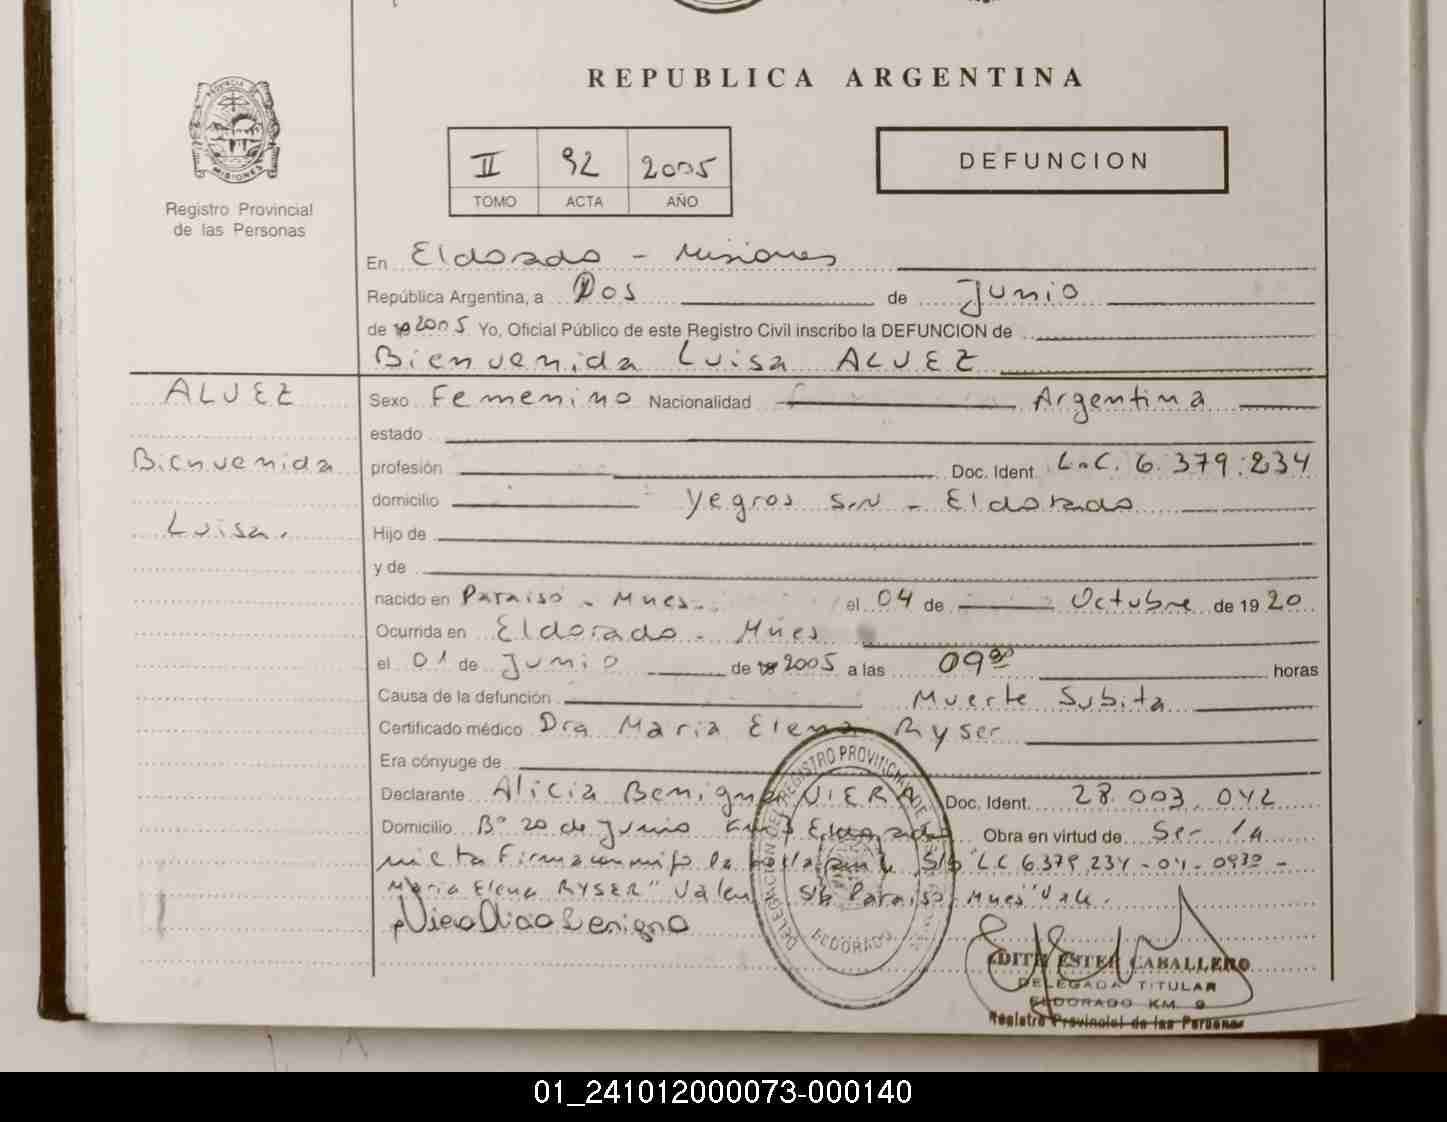 REPUBLICA ARGENTINA
PROVINCIA DE
MISIONES
Registro Provincial
de las Personas
II 92 2005
TOMO ACTA AÑO
DEFUNCION
En Eldorado - Misiones
República Argentina, a Dos de Junio
de 19 2005 Yo, Oficial Público de este Registro Civil inscribo la DEFUNCION de
Bienvenida Luisa ALVEZ
ALVEZ
Bienvenida
Luisa.
Sexo Femenino Nacionalidad Argentina
estado
profesión Doc. Ident. L.C. 6.379.234
domicilio Yegros S.N - Eldorado
Hijo de
y de
nacido en Paraiso - Mnes. el 04 de Octubre de 19 20
Ocurrida en Eldorado - Mnes
el 01 de Junio de 19 2005 a las 09 30 horas
Causa de la defunción Muerte Subita
Certificado médico Dra Maria Elena Ryser
Era cónyuge de
Declarante Alicia Benigna VIERA Doc. Ident. 28.003.042
Domicilio Bº 20 de Junio Eldorado Obra en virtud de Ser la
nieta Firma conmigo S/b "L.C 6.379.234 - 04 - 0930 -
Maria Elena RYSER" Valen S/b Paraiso Mnes" Vale.
Viera Alicia Benigna
DELEGACION DEL REGISTRO PROVINCIAL DE LAS PERSONAS
ELDORADO
EDITH ESTER CABALLERO
DELEGADA TITULAR
ELDORADO KM. 9
Registro Provincial de las Personas
01_241012000073-000140